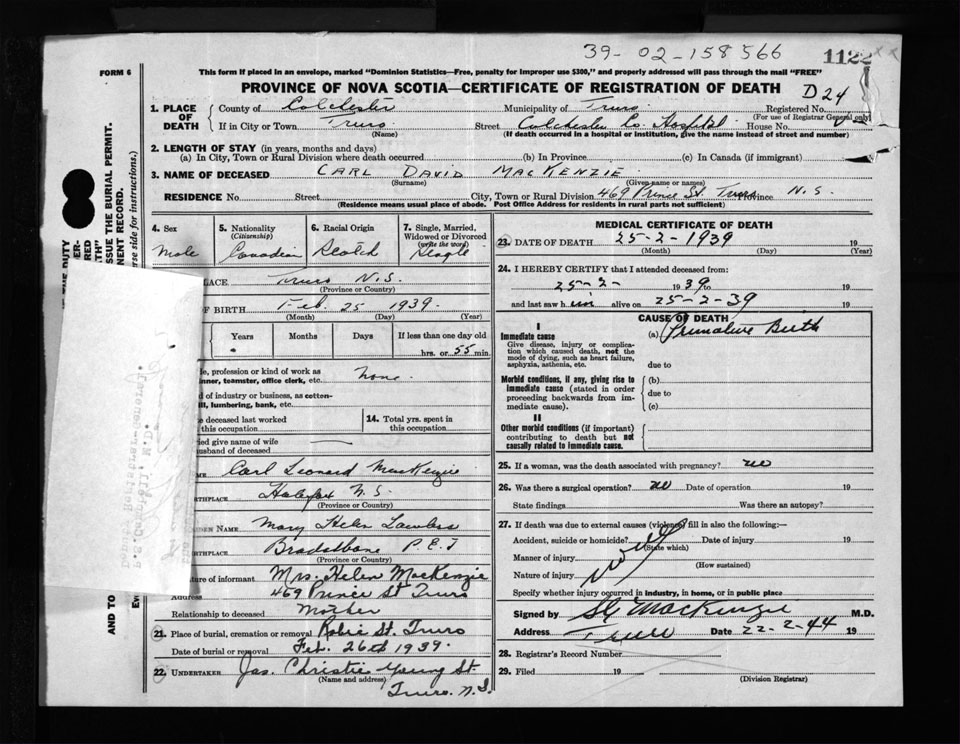 39-02-158566
1122
FORM 6
This form if placed in an envelope, marked "Dominion Statistics—Free, penalty for improper use $300," and properly addressed will pass through the mail "FREE"
PROVINCE OF NOVA SCOTIA—CERTIFICATE OF REGISTRATION OF DEATH D24
1. PLACE OF DEATH
County of Colchester Municipality of Truro Registered No.
(For use of Registrar General only)
If in City or Town Truro Street Colchester Co. Hospital House No.
(Name) (If death occurred in a hospital or institution, give the name instead of street and number)
2. LENGTH OF STAY (in years, months and days)
(a) In City, Town or Rural Division where death occurred (b) In Province (c) In Canada (if immigrant)
3. NAME OF DECEASED CARL DAVID MACKENZIE
(Surname) (Given name or names)
RESIDENCE No. Street City, Town or Rural Division 469 Prince St Truro Province N.S.
(Residence means usual place of abode. Post Office Address for residents in rural parts not sufficient)
4. Sex
Male
5. Nationality
(Citizenship)
Canadian
6. Racial Origin
Scotch
7. Single, Married, Widowed or Divorced
(write the word)
Single
LACE Truro N.S.
(Province or Country)
OF BIRTH Feb. 25 1939.
(Month) (Day) (Year)
Years Months Days If less than one day old
hrs. or 55 min.
e, profession or kind of work as
nner, teamster, office clerk, etc. none.
d of industry or business, as cotton-
ill, lumbering, bank, etc.
te deceased last worked
this occupation
14. Total yrs. spent in
this occupation
ried give name of wife
usband of deceased
ME Carl Leonard MacKenzie
RTHPLACE Halifax N.S.
(Province or Country)
DEN NAME Mary Helen
RTHPLACE P.E.I
(Province or Country)
ature of informant Mrs. Helen MacKenzie
Address 469 Prince St Truro
Relationship to deceased Mother
21. Place of burial, cremation or removal Robie St. Truro
Date of burial or removal Feb. 26th 1939.
22. UNDERTAKER Jas. Christie Young St.
(Name and address) Truro N.S.
MEDICAL CERTIFICATE OF DEATH
23. DATE OF DEATH 25-2-1939 19
(Month) (Day) (Year)
24. I HEREBY CERTIFY that I attended deceased from:
25-2- 1939 to 19
and last saw him alive on 25-2-39 19
CAUSE OF DEATH
I
Immediate cause
Give disease, injury or complication which caused death, not the mode of dying, such as heart failure, asphyxia, asthenia, etc.
(a) Premature Birth
due to
Morbid conditions, if any, giving rise to immediate cause (stated in order proceeding backwards from immediate cause).
(b)
due to
(c)
II
Other morbid conditions (if important) contributing to death but not causally related to immediate cause.
25. If a woman, was the death associated with pregnancy? no
26. Was there a surgical operation? no Date of operation 19
State findings Was there an autopsy?
27. If death was due to external causes (violence) fill in also the following:—
Accident, suicide or homicide? Date of injury 19
(State which)
Manner of injury
(How sustained)
Nature of injury
Specify whether injury occurred in industry, in home, or in public place
Signed by MacKenzie M.D.
Address Truro Date 22-2-44 19
28. Registrar's Record Number
29. Filed 19
(Division Registrar)
ISSUE THE BURIAL PERMIT.
NENT RECORD.
erse side for instructions.)
THE DUTY
AND TO